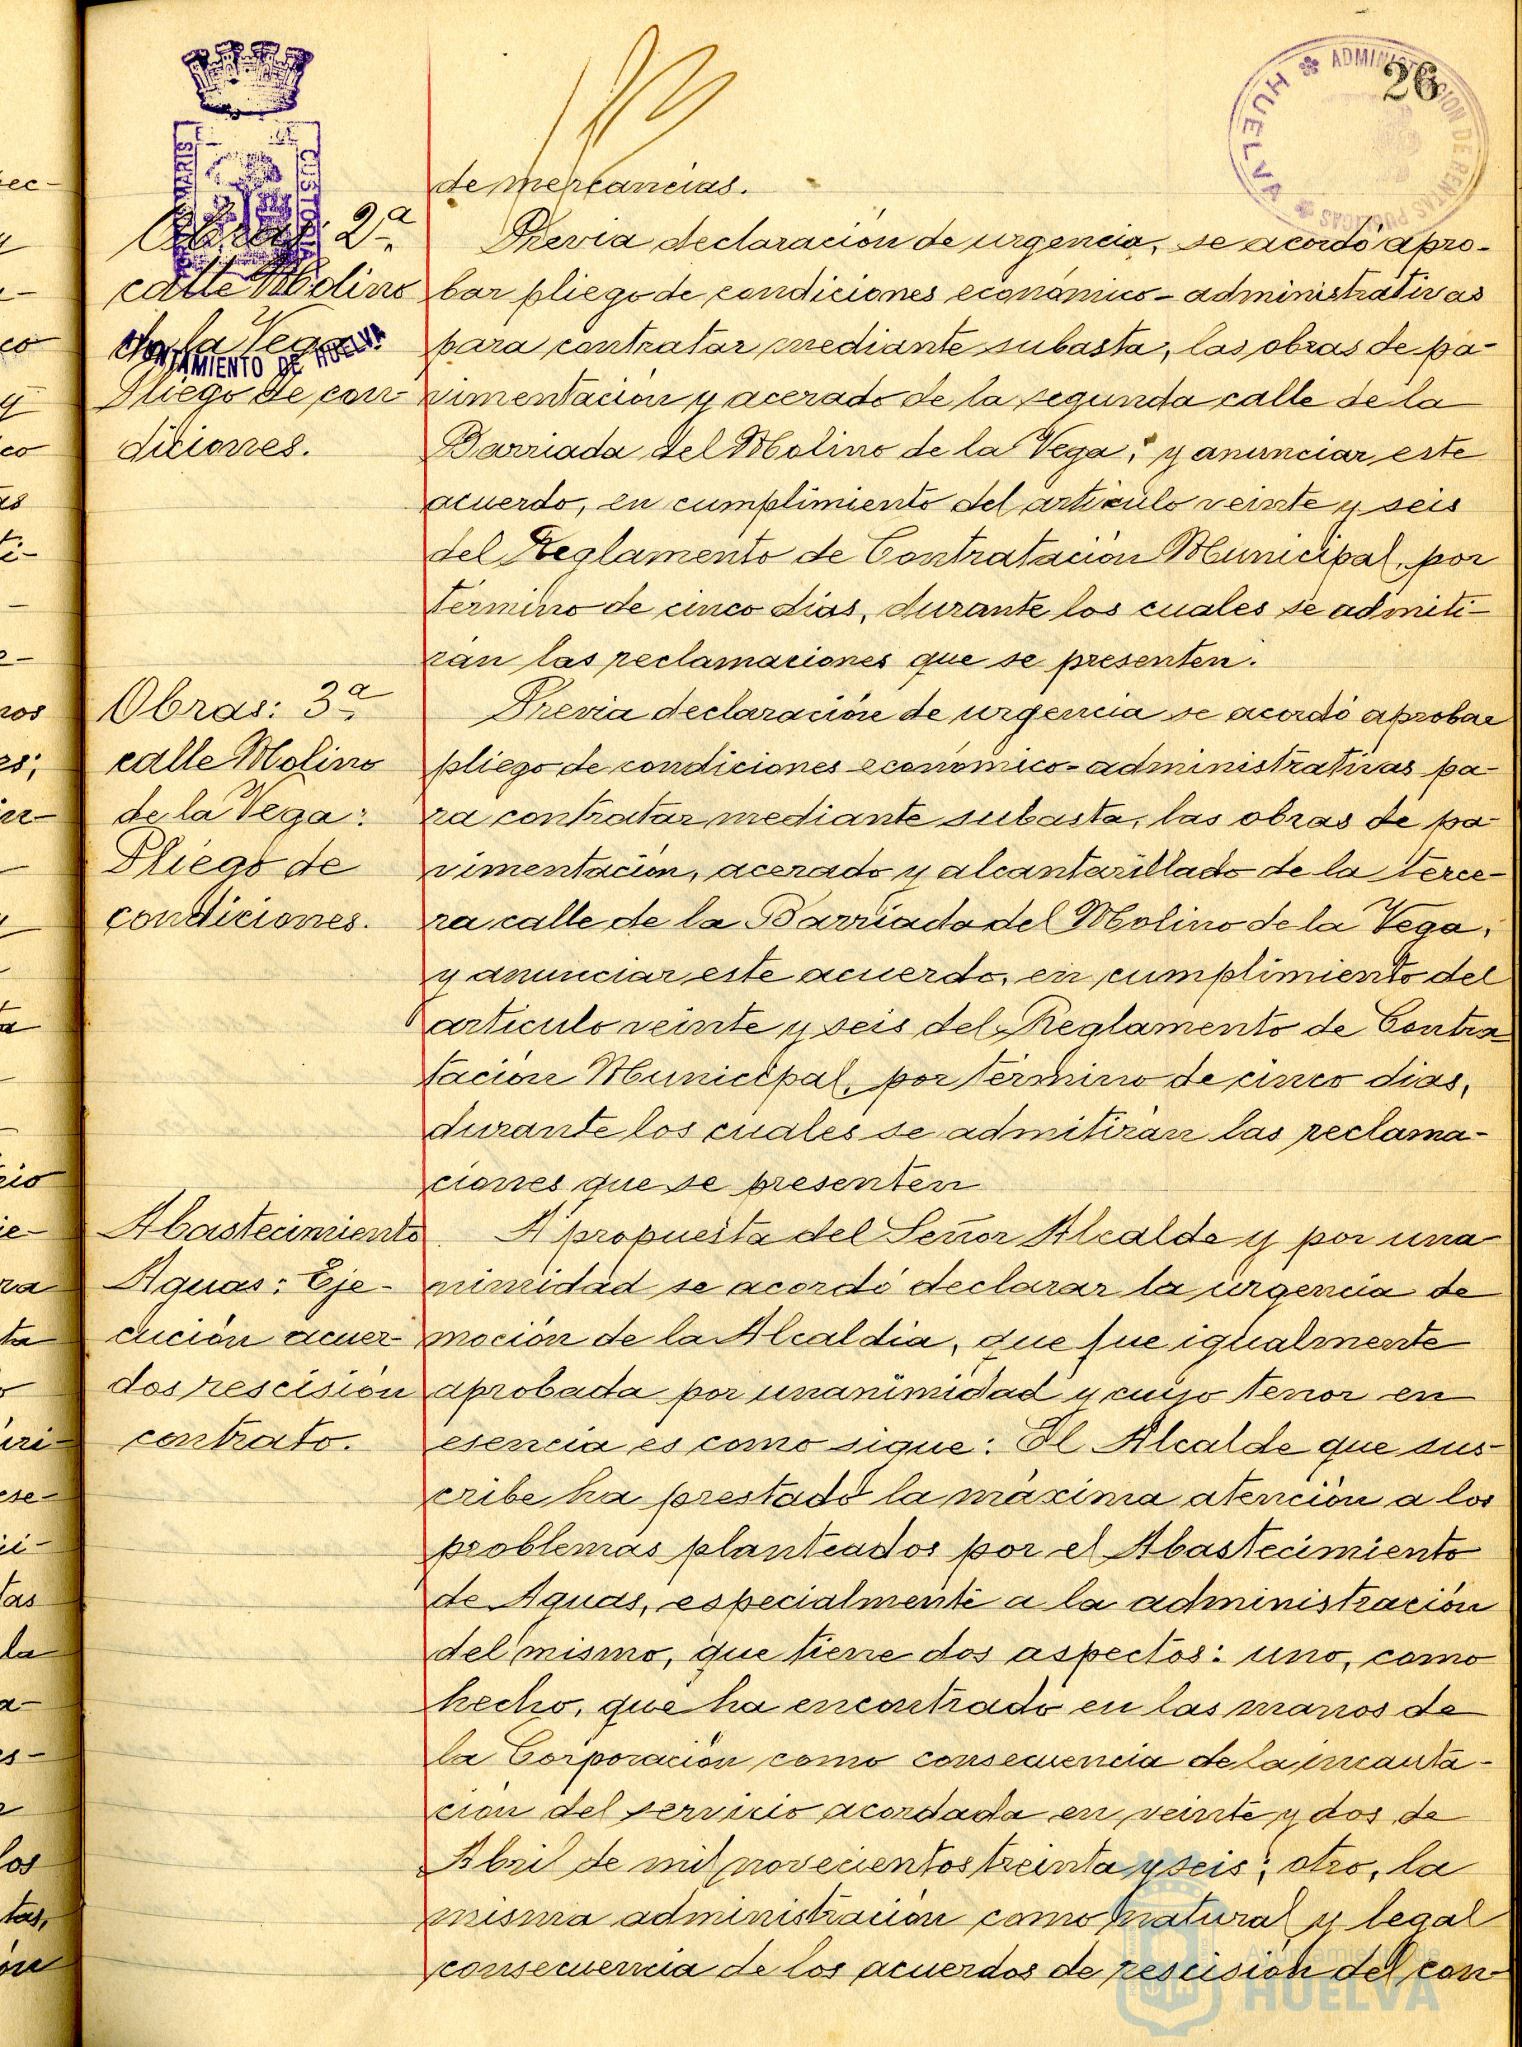 26
ADMINISTRACION DE RENTAS PUBLICAS
HUELVA
MARIS
CUSTODIA
AYUNTAMIENTO DE HUELVA
de mercancias.
Obras: 2ª
calle Molino
de la Vega:
Pliego de con-
diciones.
Previa declaración de urgencia, se acordó apro-
bar pliego de condiciones económico-administrativas
para contratar mediante subasta, las obras de pa-
vimentación y acerado de la segunda calle de la
Barriada del Molino de la Vega; y anunciar este
acuerdo, en cumplimiento del articulo veinte y seis
del Reglamento de Contratación Municipal, por
término de cinco dias, durante los cuales se admiti-
rán las reclamaciones que se presenten.
Obras: 3ª
calle Molino
de la Vega:
Pliego de
condiciones.
Previa declaración de urgencia se acordó aprobar
pliego de condiciones económico-administrativas pa-
ra contratar mediante subasta, las obras de pa-
vimentación, acerado y alcantarillado de la terce-
ra calle de la Barriada del Molino de la Vega;
y anunciar este acuerdo, en cumplimiento del
articulo veinte y seis del Reglamento de Contra
tación Municipal, por término de cinco dias,
durante los cuales se admitirán las reclama-
ciones que se presenten
Abastecimiento
Aguas: Eje-
cución acuer-
dos rescisión
contrato.
A propuesta del Señor Alcalde y por una-
nimidad se acordó declarar la urgencia de
moción de la Alcaldia, que fue igualmente
aprobada por unanimidad y cuyo tenor en
esencia es como sigue: El Alcalde que sus-
cribe ha prestado la máxima atención a los
problemas planteados por el Abastecimiento
de Aguas, especialmente a la administración
del mismo, que tiene dos aspectos: uno, como
hecho, que ha encontrado en las manos de
la Corporación como consecuencia de la incauta-
ción del servicio acordada en veinte y dos de
Abril de mil novecientos treinta y seis; otro, la
misma administración como natural y legal
consecuencia de los acuerdos de rescisión del con-
Ayuntamiento de
HUELVA